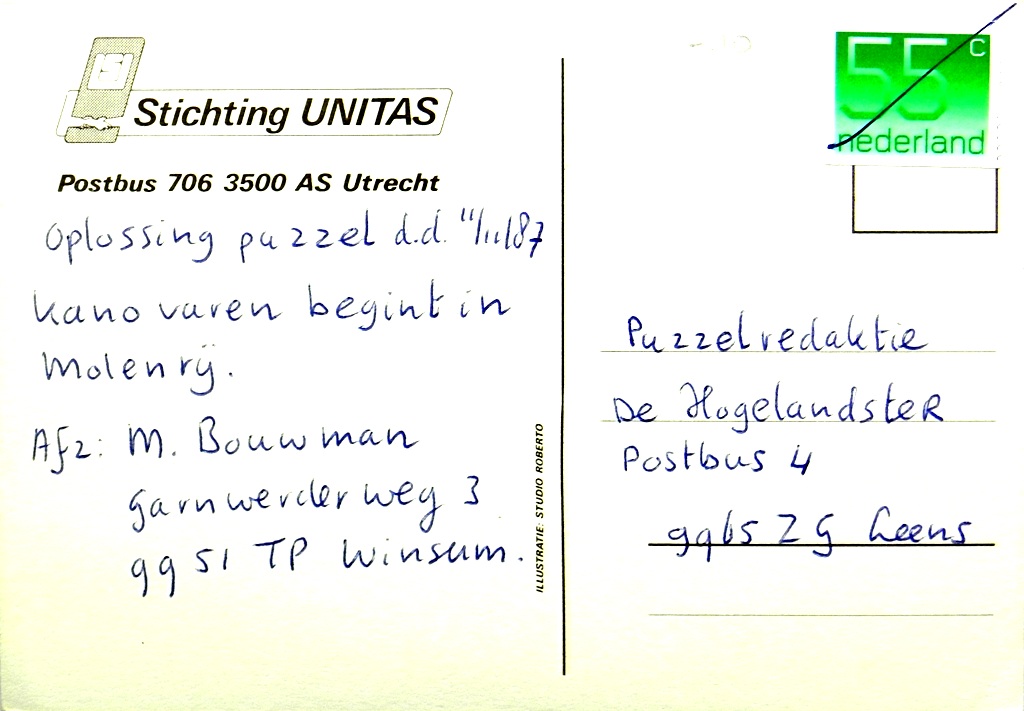 Stichting UNITAS
Postbus 706 3500 AS Utrecht
Oplossing puzzel d.d. 11/11/87
Kano varen begint in
Molenrij.
Afz: M. Bouwman
Garnwerderweg 3
9951 TP Winsum.
ILLUSTRATIE: STUDIO ROBERTO
55 c
nederland
Puzzelredaktie
De HogelandsteR
Postbus 4
9965 ZG Leens